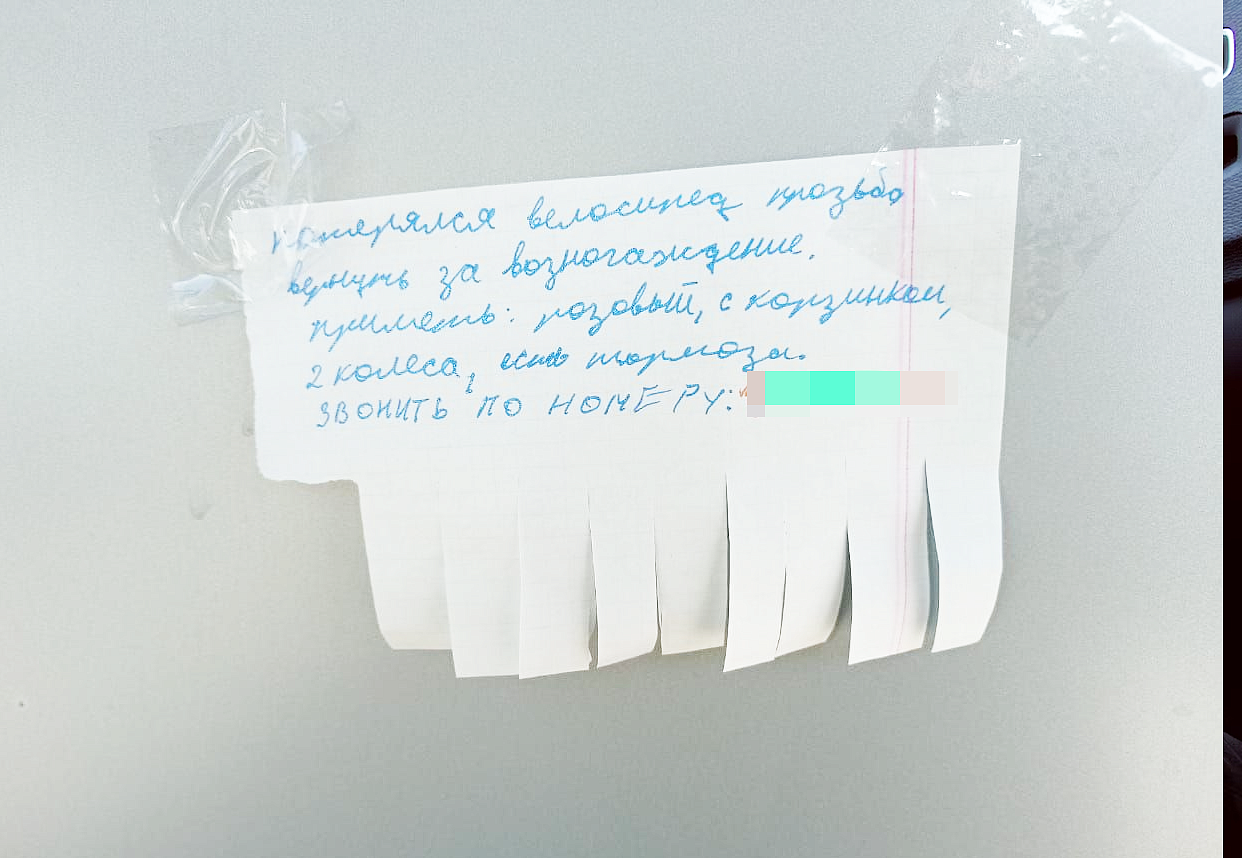 потерялся велосипед прозьба
вернуть за возногаждение.
приметь: розовый, с корзинкой,
2 колеса, есть тормоза.
ЗВОНИТЬ ПО НОМЕРУ: